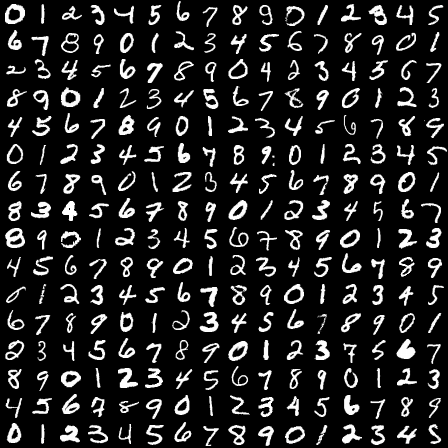 0 1 2 3 4 5 6 7 8 9 0 1 2 3 4 5
6 7 8 9 0 1 2 3 4 5 6 7 8 9 0 1
2 3 4 5 6 7 8 9 0 4 2 3 4 5 6 7
8 9 0 1 2 3 4 5 6 7 8 9 0 1 2 3
4 5 6 7 8 9 0 1 2 3 4 5 6 7 8 9
0 1 2 3 4 5 6 7 8 9 0 1 2 3 4 5
6 7 8 9 0 1 2 3 4 5 6 7 8 9 0 1
8 3 4 5 6 7 8 9 0 1 2 3 4 5 6 7
8 9 0 1 2 3 4 5 6 7 8 9 0 1 2 3
4 5 6 7 8 9 0 1 2 3 4 5 6 7 8 9
0 1 2 3 4 5 6 7 8 9 0 1 2 3 4 5
6 7 8 9 0 1 2 3 4 5 6 7 8 9 0 1
2 3 4 5 6 7 8 9 0 1 2 3 7 5 6 7
8 9 0 1 2 3 4 5 6 7 8 9 0 1 2 3
4 5 6 7 8 9 0 1 2 3 4 5 6 7 8 9
0 1 2 3 4 5 6 7 8 9 0 1 2 3 4 5